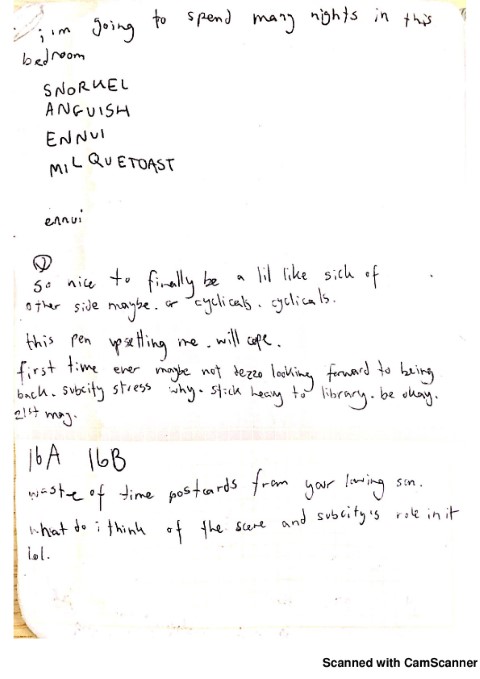 i'm going to spend many nights in this
bedroom
SNORKEL
ANGUISH
ENNUI
MILQUETOAST
ennui
so nice to finally be a lil like sick of
other side maybe. or cyclicals. cyclicals.
this pen upsetting me. will cope.
first time ever maybe not dezzo looking forward to being
back. subcity stress why. stick heavy to library. be okay.
21st may.
16A 16B
waste of time postcards from your loving son.
what do i think of the scene and subcity's role in it
lol.
Scanned with CamScanner